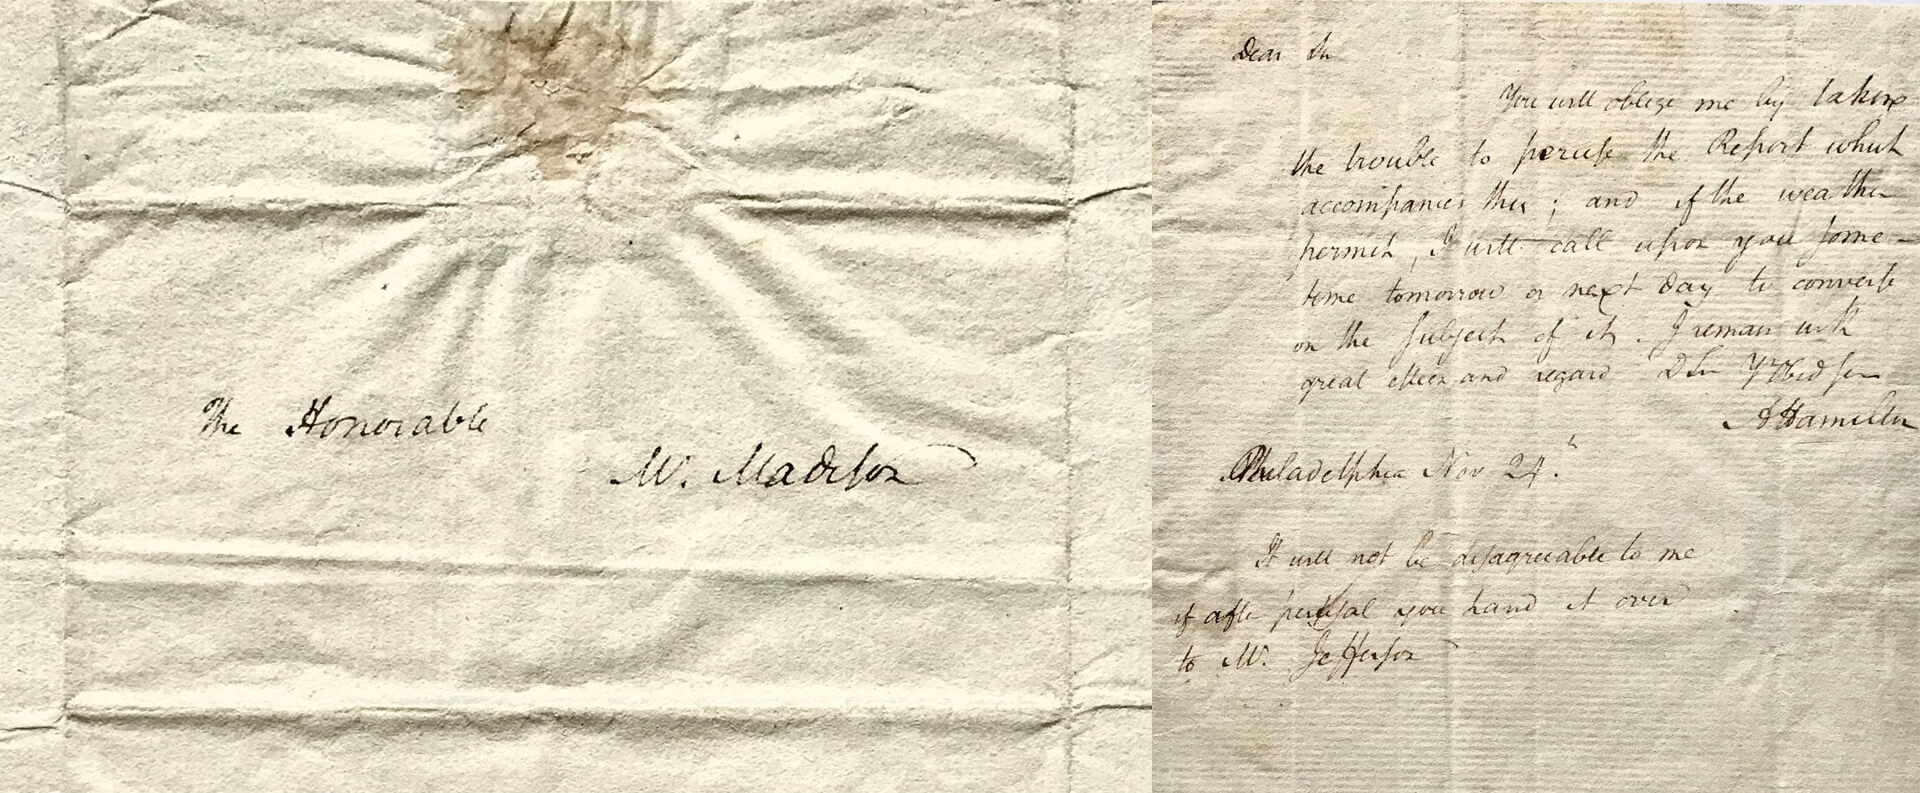 The Honorable
Mr. Madison
Dear Sir
You will oblige me by taking
the trouble to peruse the Report which
accompanies this; and if the weather
permits, I will call upon you some-
time tomorrow or next day to converse
on the subject of it. I remain with
great esteem and regard D Sir Yr Obed ser
A Hamilton
Philadelphia Nov 24.
It will not be disagreeable to me
if after perusal you hand it over
to Mr. Jefferson